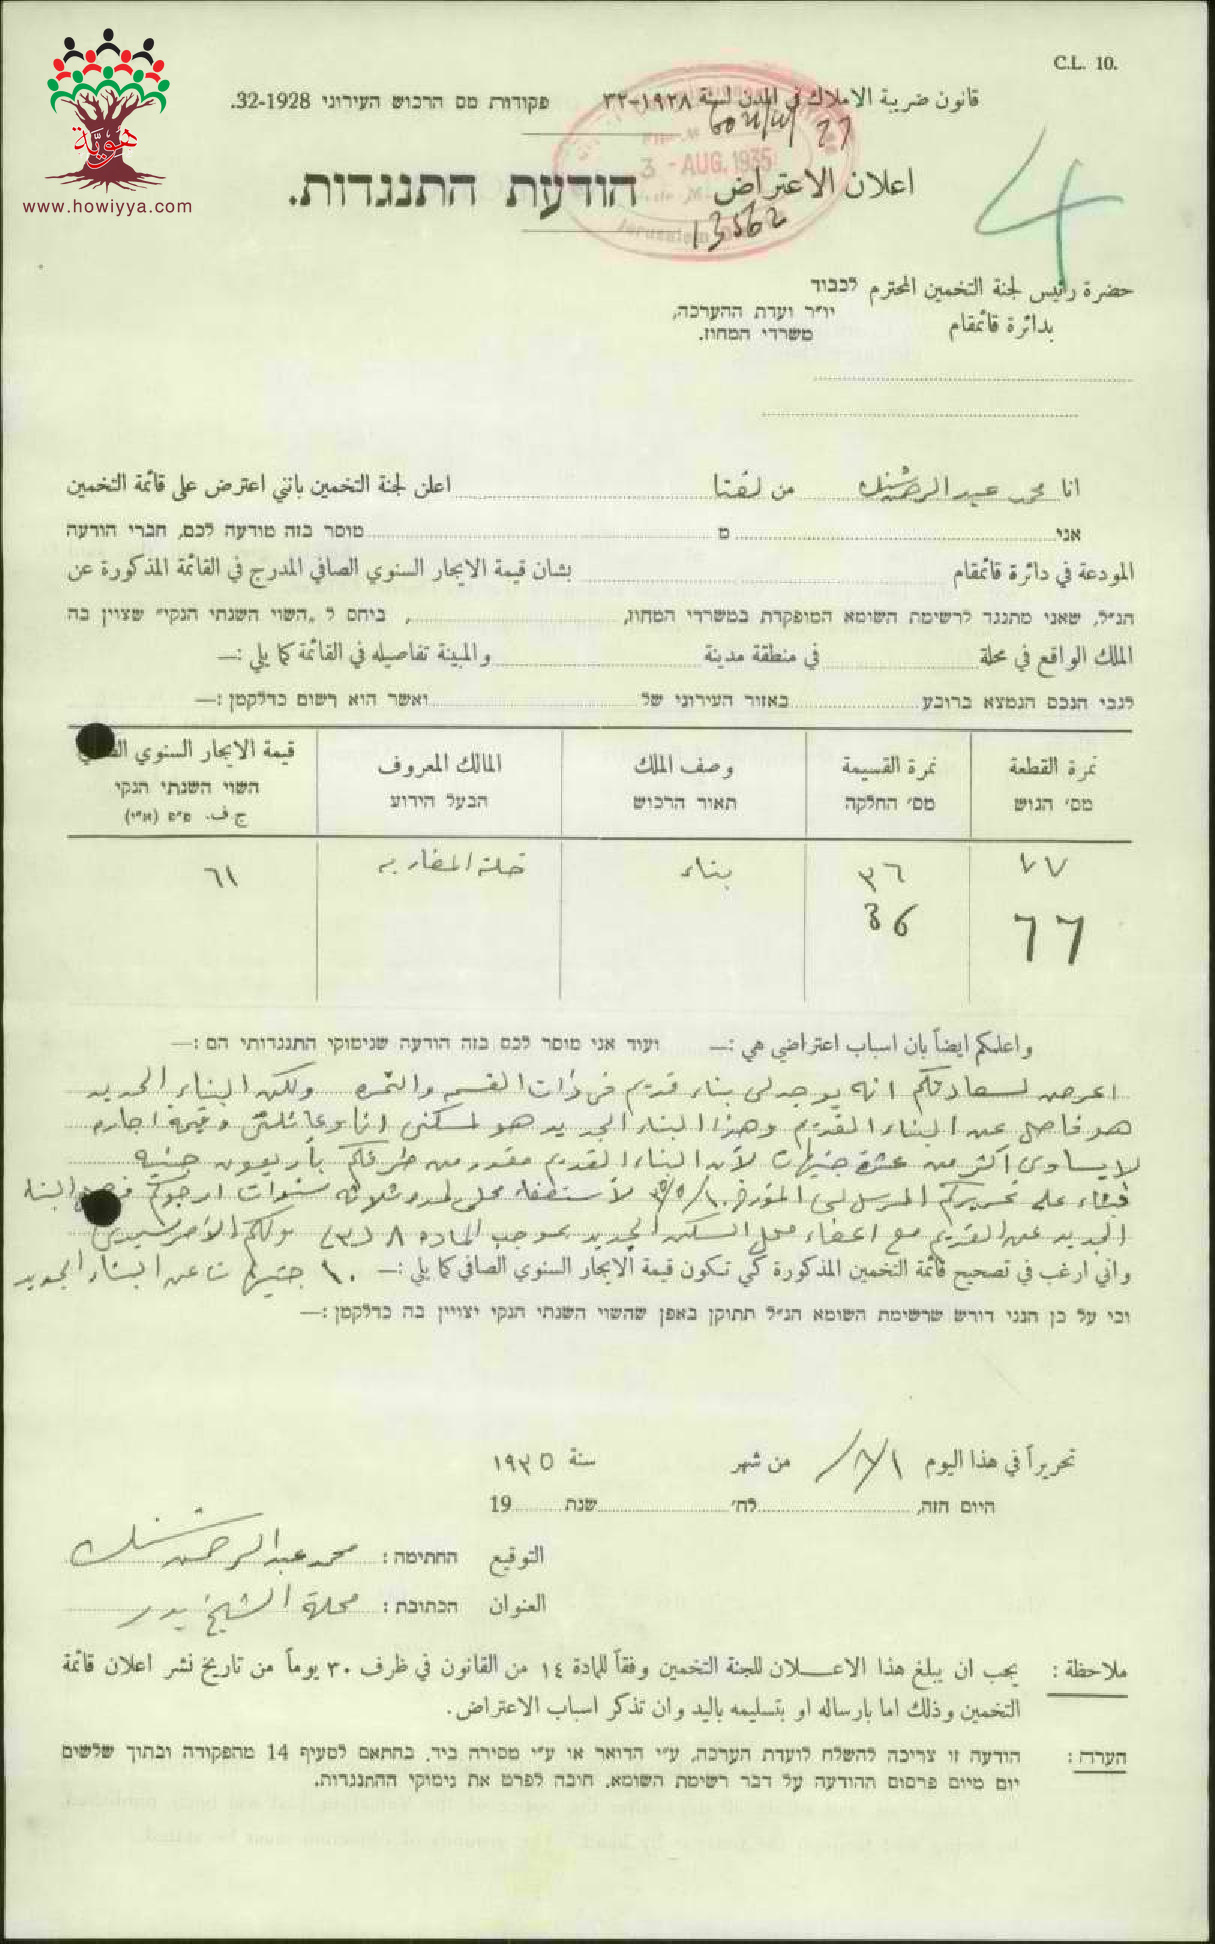 C.L. 10.
قانون ضريبة الاملاك في المدن لسنة ١٩٢٨-٣٢ פקודות מס הרכוש העירוני 32-1928.
هويّة
www.howiyya.com
3 - AUG. 1935
Jerusalem
اعلان الاعتراض הודעת התנגדות.
13562
4
حضرة رئيس لجنة التخمين المحترم לכבוד
יו״ר ועדת ההערכה,
بدائرة قائمقام משרדי המחוז.
انا محمد عبد الرحمن من لفتا اعلن لجنة التخمين بانني اعترض على قائمة التخمين
אני מ מוסר בזה מודעה לכם, חברי הועדה
المودعة في دائرة قائمقام بشان قيمة الايجار السنوي الصافي المدرج في القائمة المذكورة عن
הנ״ל, שאני מתנגד לרשימת השומא המופקדת במשרדי המחוז, , ביחס ל „השוי השנתי הנקי״ שצוין בה
الملك الواقع في محلة في منطقة مدينة والمبينة تفاصيله في القائمة كما يلي :—
לגבי הנכס הנמצא ברובע באזור העירוני של ואשר הוא רשום כדלקמן :—
نمرة القطعة نمرة القسيمة وصف الملك المالك المعروف قيمة الايجار السنوي
מס׳ הגוש מס׳ החלקה תאור הרכוש הבעל הידוע השוי השנתי הנקי
ج.ف. מ״מ (א״י)
٧٧ ٣٦ بناء ٦١
77 36
واعلمكم ايضاً بان اسباب اعتراضي هي :— ועוד אני מוסר לכם בזה הודעה שנימוקי התנגדותי הם :—
اعرض لسعادتكم انه يوجد لي بناء قديم في ذات القسم والنمره ولكن البناء الجديد
هو فاصل عن البناء القديم وهذا البناء الجديد هو لسكني انا وعائلتي وقيمة اجاره
لا يساوي اكثر من عشرة جنيهات لأن البناء القديم مقدور من طرفكم بأربعون جنيه
على تحريركم المرسل لي المؤرخ ثلاثه سنوات ارجوكم البناء
الجديد عن القديم مع اعفاء محل السكن الجديد بموجب الماده ٨
واني ارغب في تصحيح قائمة التخمين المذكورة كي تكون قيمة الايجار السنوي الصافي كما يلي :— ١٠ جنيهات عن البناء الجديد
וכי על כן הנני דורש שרשימת השומא הנ״ל תתוקן באפן שהשוי השנתי הנקי יצויין בה כדלקמן :—
تحريراً في هذا اليوم ٨/١ من شهر سنة ١٩٣٥
היום הזה, לח׳ שנת 19
التوقيع החתימה : محمد عبد الرحمن
العنوان הכתובת : محلة الشيخ بدر
ملاحظة : يجب ان يبلغ هذا الاعـــلان للجنة التخمين وفقاً للمادة ١٤ من القانون في ظرف ٣٠ يوماً من تاريخ نشر اعلان قائمة
التخمين وذلك اما بارساله او بتسليمه باليد وان تذكر اسباب الاعتراض.
הערה : הודעה זו צריכה להשלח לועדת הערכה, ע״י הדואר או ע״י מסירה ביד, בהתאם לסעיף 14 מהפקודה ובתוך שלשים
יום מיום פרסום ההודעה על דבר רשימת השומא. חובה לפרט את נימוקי ההתנגדות.